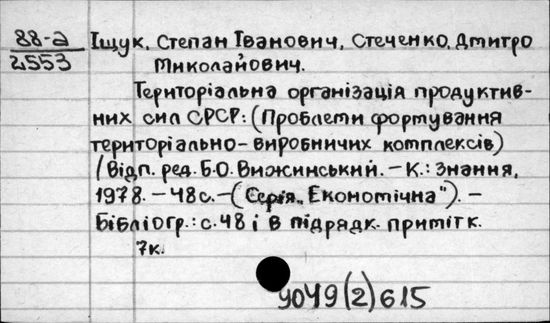 88-а Іщук, Степан Іванович, Стеченко, Дмитро
2553 Миколайович.
Територіальна організація продуктив-
них сил СРСР: (Проблеми формування
територіально-виробничих комплексів)
/Відп. ред. Б.О. Вижинський. – К.: Знання,
1978. – 48 с. – (Серія „Економічна"). –
Бібліогр.: с. 48 і в підрядк. примітк.
7к.
У049(2)615